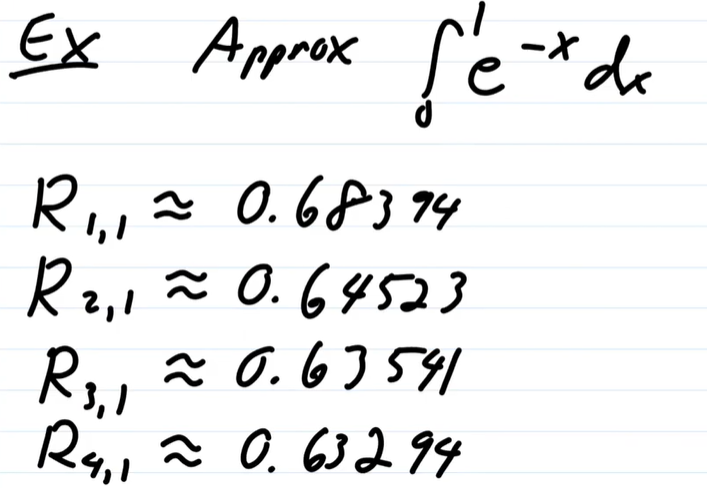 Ex Approx ∫₀¹ e^{-x} dx
R_{1,1} ≈ 0.68394
R_{2,1} ≈ 0.64523
R_{3,1} ≈ 0.63541
R_{4,1} ≈ 0.63294